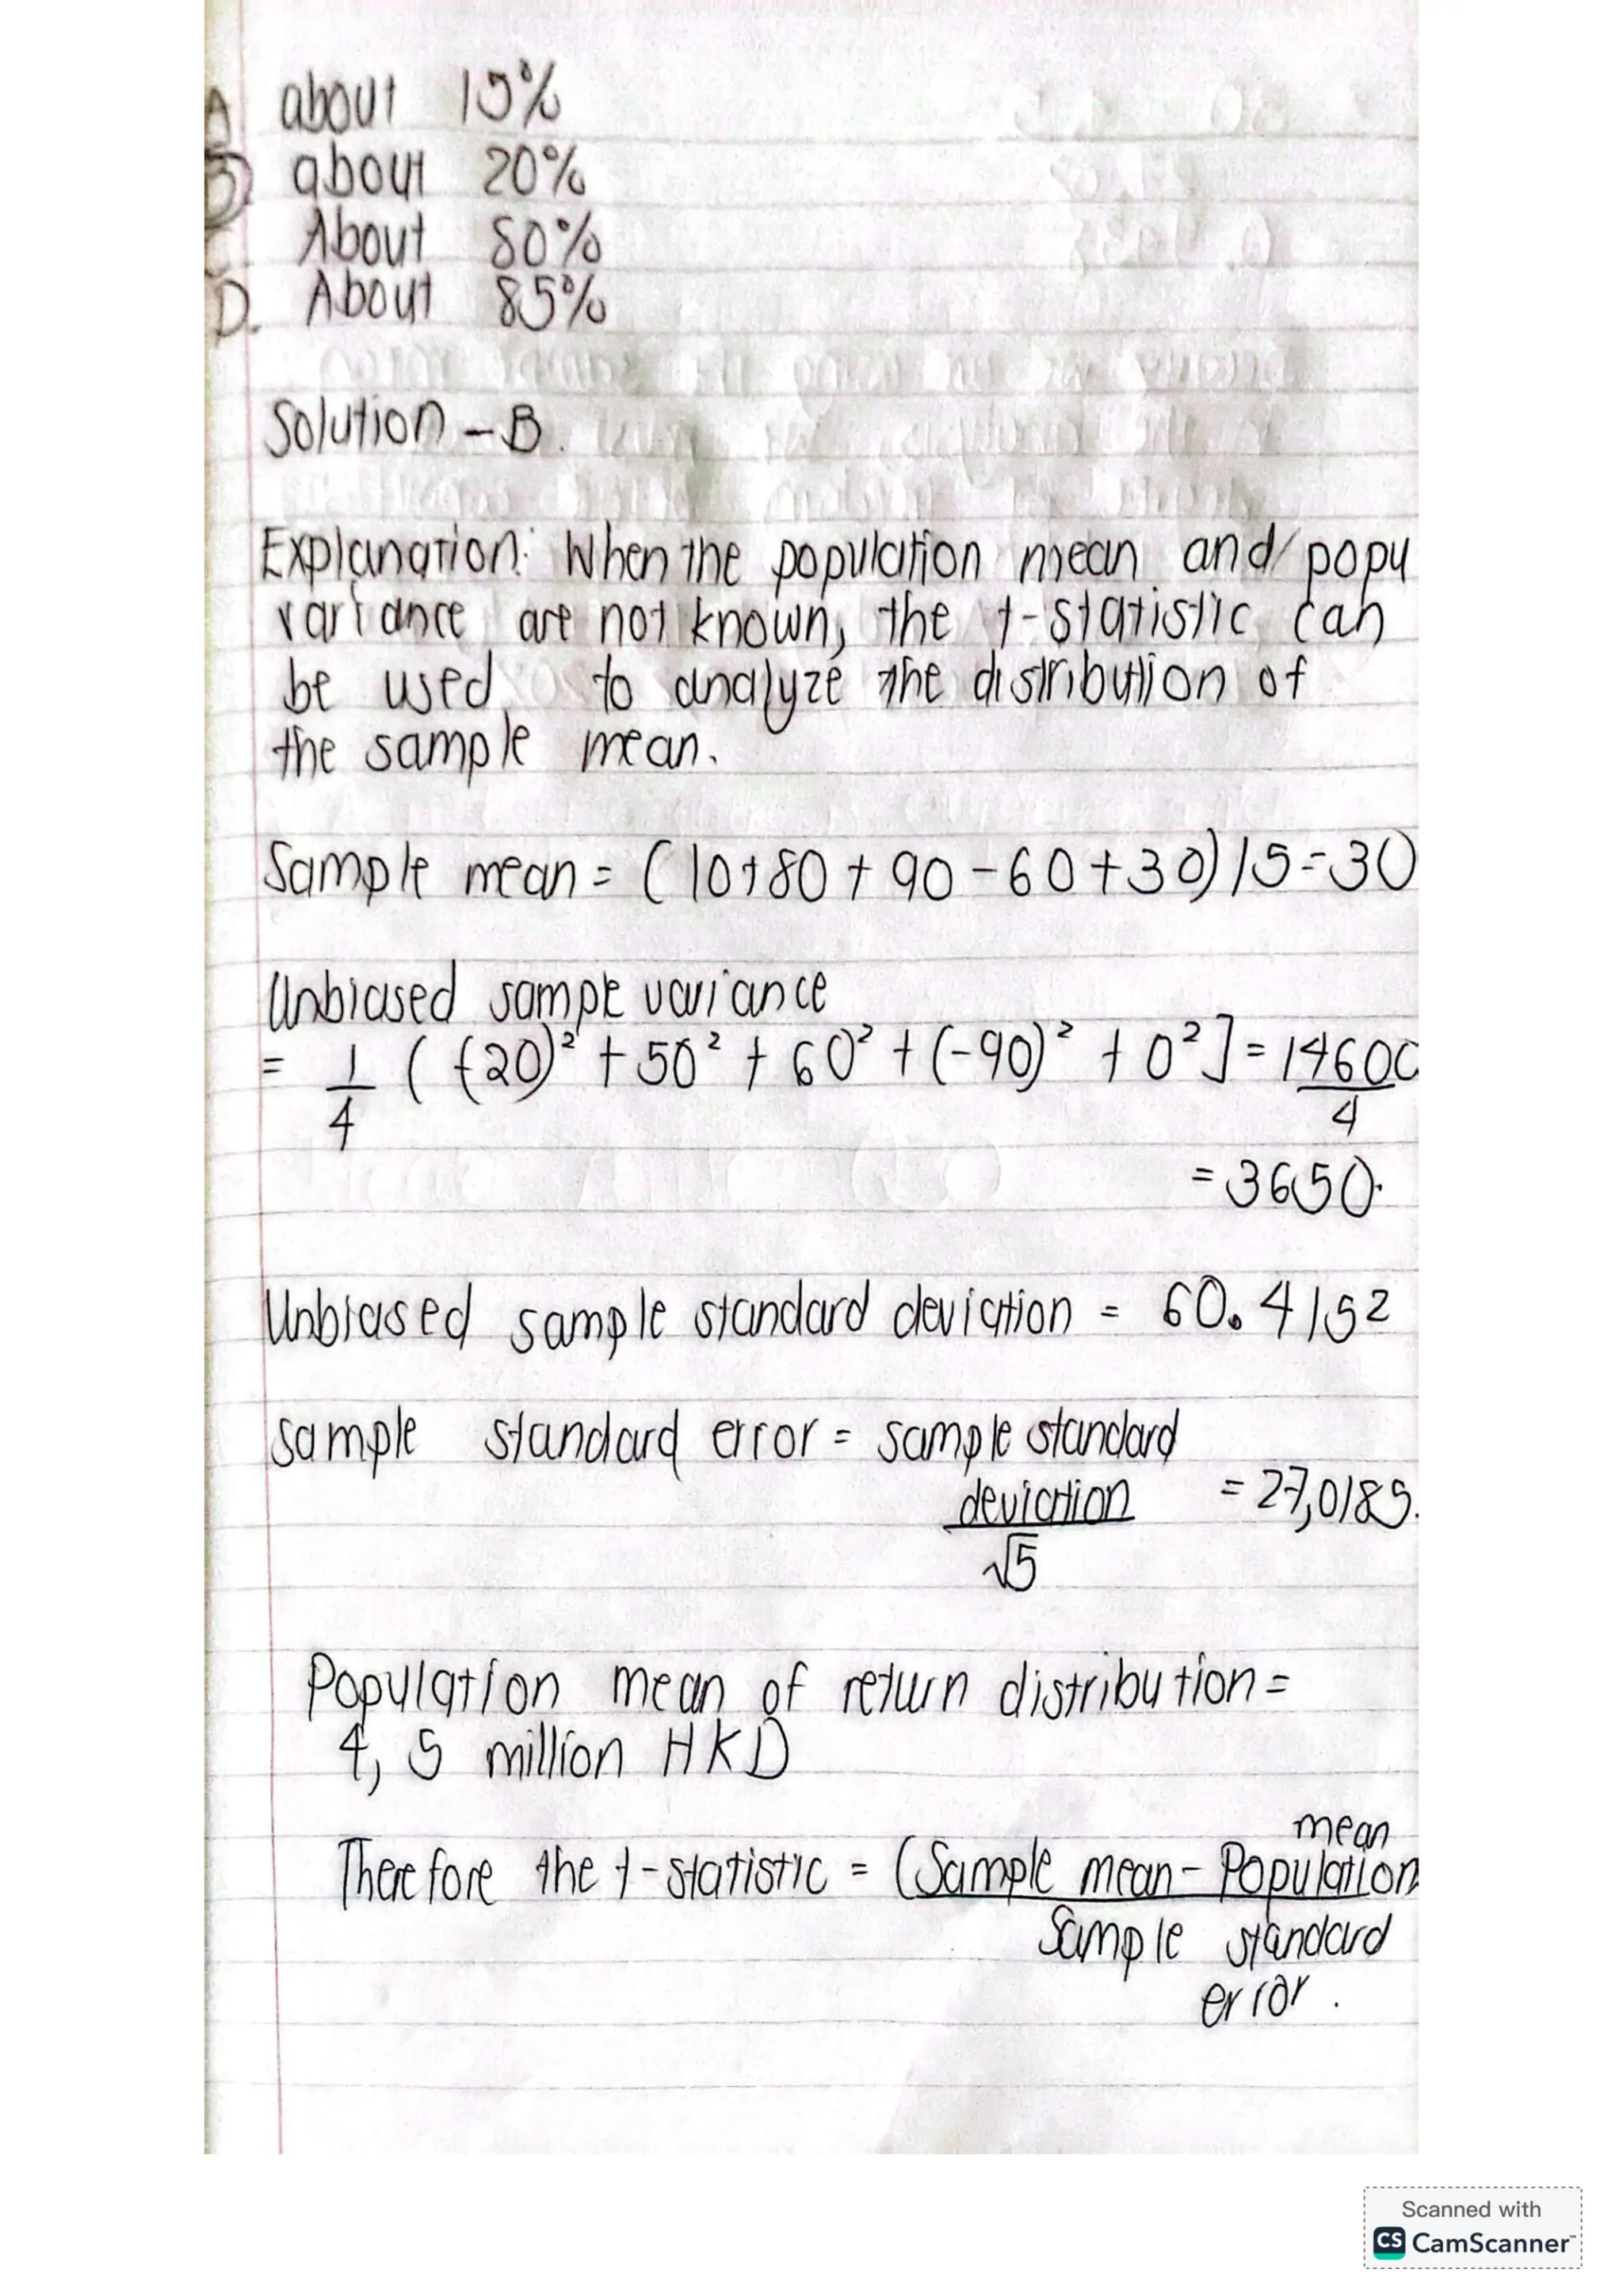 A about 15%
B. about 20%
C. About 80%
D. About 85%
Solution - B.
Explanation: When the population mean and/popu
variance are not known, the t-statistic can
be used to analyze the distribution of
the sample mean.
Sample mean = (10+80+90-60+30)/5=30
Unbiased sample variance
= 1/4 ((-20)² + 50² + 60² + (-90)² + 0²] = 14600/4
= 3650.
Unbiased sample standard deviation = 60.4152
Sample standard error = sample standard
deviation/√5 = 27,0185.
Population mean of return distribution =
4,5 million HKD
mean
Therefore the t-statistic = (Sample mean - Population
Sample standard
error.
Scanned with
CS CamScanner™